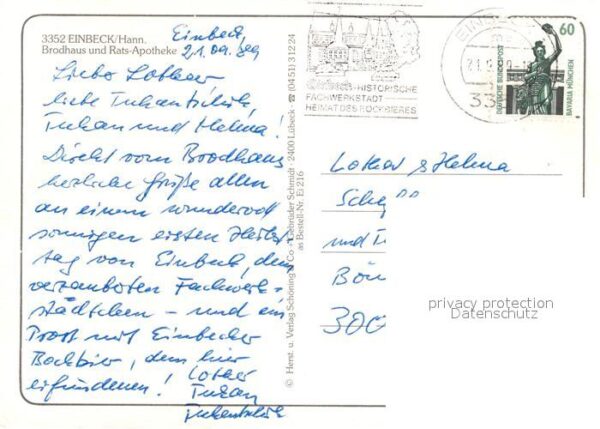 3352 EINBECK/Hann.
Brodhaus und Rats-Apotheke
Einbeck,
21.09.
Liebe Lothar
liebe
Tukan und Helma!
Direkt vom Brodhaus
herzliche Grüße allen
an einem
sonnigen ersten Herbst
tag von Einbeck, dem
verzauberten Fachwerk-
städtchen – und ein
Prost mit Einbecker
Bockbier, dem hier
erfundenen!
Lothar
Tukan
© Herst. u. Verlag Schöning & Co · Gebrüder Schmidt · 2400 Lübeck · ☎ (0451) 31224
as Bestell-Nr. Ei 216
-HISTORISCHE
FACHWERKSTADT
HEIMAT DES BOCKBIERES
EINB
33
60
DEUTSCHE BUNDESPOST
BAVARIA MÜNCHEN
Lothar & Helma
Sch
und T
300
privacy protection
Datenschutz